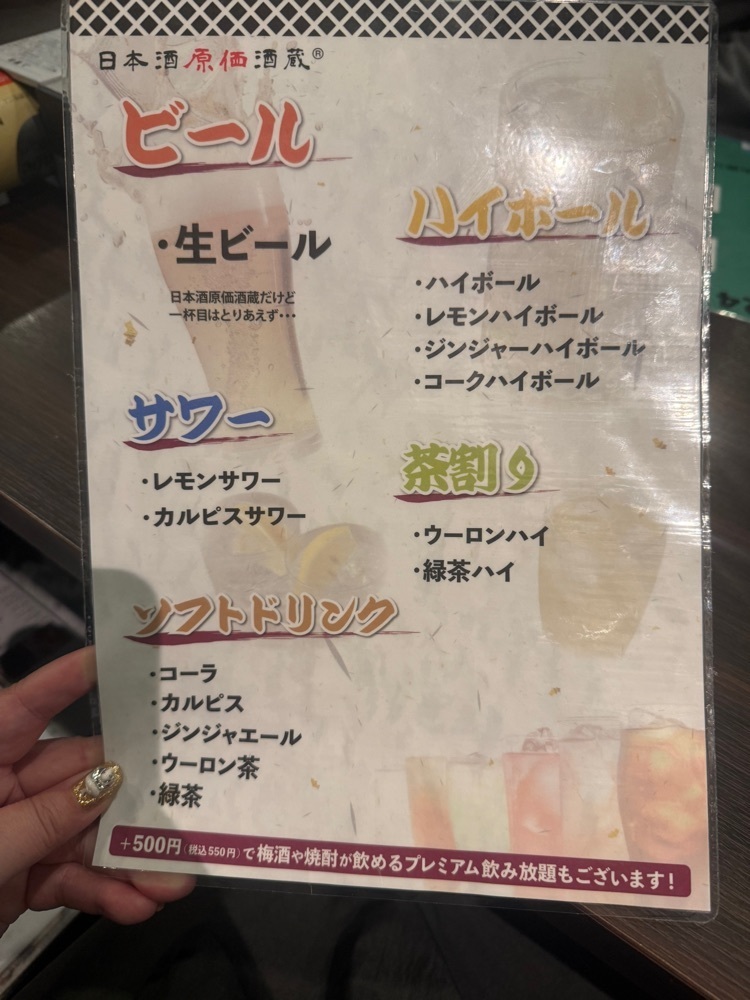 日本酒原価酒蔵®
ビール
・生ビール
日本酒原価酒蔵だけど
一杯目はとりあえず・・・
ハイボール
・ハイボール
・レモンハイボール
・ジンジャーハイボール
・コークハイボール
サワー
・レモンサワー
・カルピスサワー
茶割り
・ウーロンハイ
・緑茶ハイ
ソフトドリンク
・コーラ
・カルピス
・ジンジャエール
・ウーロン茶
・緑茶
+500円(税込550円)で梅酒や焼酎が飲めるプレミアム飲み放題もございます!